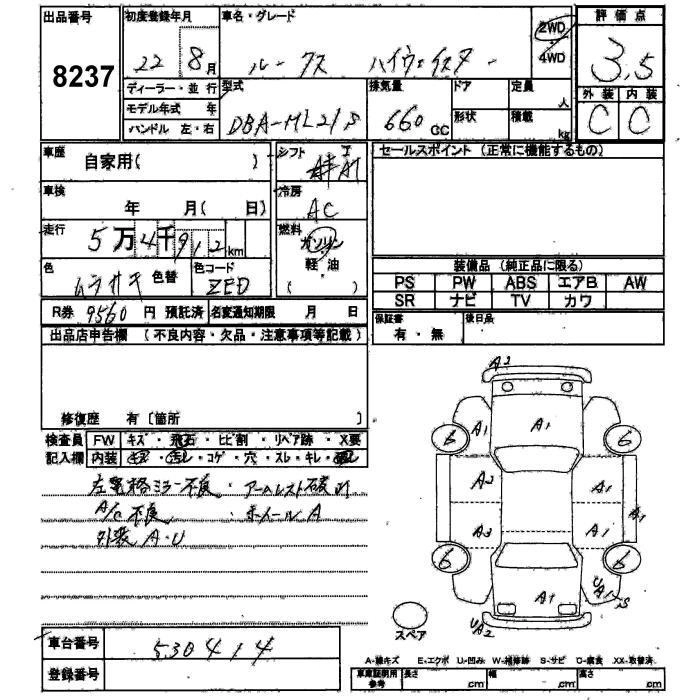 出品番号 初度登録年月 車名・グレード 2WD 評価点
8237 22 8月 ルークス ハイウェイスター 4WD 3.5
ディーラー・並行 型式 排気量 ドア 定員 人 外装 内装
モデル年式 年 DBA-ML21S 660 CC 形状 積載 kg C C
ハンドル 左・右
車歴 自家用( ) シフト セールスポイント (正常に機能するもの)
車検 年 月( 日) 冷房 AC
走行 5万4千912km 燃料 ガソリン 軽油 ( )
色 ムラサキ 色替 色コード ZED
装備品 (純正品に限る)
PS PW ABS エアB AW
SR ナビ TV カワ
R券 9560 円 預託済 名変通知期限 月 日
保証書 有・無 後日品
出品店申告欄 (不良内容・欠品・注意事項等記載)
修復歴 有〔箇所 〕
検査員 FW キズ・飛石・ヒビ割・リペア跡・X要
記入欄 内装 ・コゲ・穴・スレ・キレ・
左電格ミラー不良・アームレスト破れ
A/C不良・ホイールA
外装A・U
A2
A1 A1
6 6
A2 A1
A3 A1 A1
6 6
A1
UA2
スペア
車台番号 530414
登録番号
A-線キズ E-エクボ U-凹み W-補修跡 S-サビ C-腐食 XX-取替済
車庫証明用参考 長さ cm 幅 cm 高さ cm